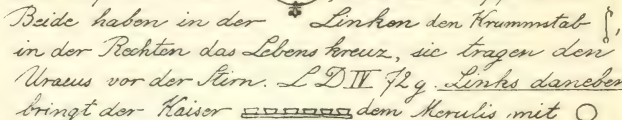 Beide haben in der Linken den Krummstab,
in der Rechten das Lebenskreuz, sie tragen den
Uraeus vor der Stirn. L D IV 72 g. Links daneben
bringt der Kaiser dem Merulis mit